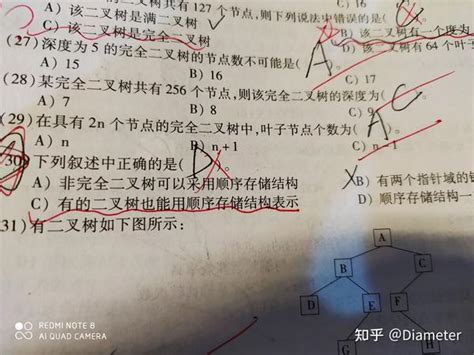 共有127个节点,则下列说法中错误的是(
A) 该二叉树是满二叉树
C) 该二叉树是完全二叉树
B) 该二叉树有一个度为
D) 该二叉树有64个叶子
(27)深度为5的完全二叉树的节点数不可能是( A ).
A) 15 B) 16 C) 17
(28)某完全二叉树共有256个节点,则该完全二叉树的深度为( C
A) 7 B) 8 C) 9
(29)在具有2n个节点的完全二叉树中,叶子节点个数为( A ).
A) n B) n+1 C) n-1
30)下列叙述中正确的是( D
A) 非完全二叉树可以采用顺序存储结构 B) 有两个指针域的链
C) 有的二叉树也能用顺序存储结构表示 D) 顺序存储结构一
31)有二叉树如下图所示:
A
B C
D E F
G H
REDMI NOTE 8
AI QUAD CAMERA
知乎 @Diameter